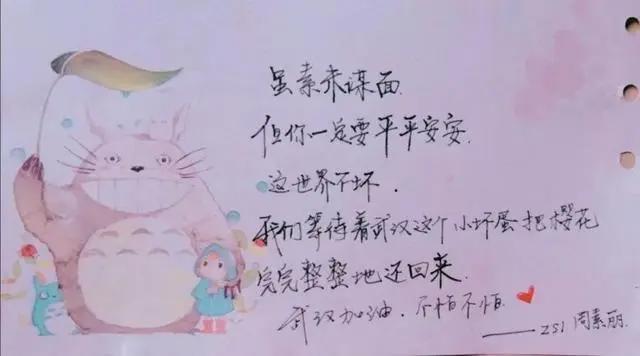 虽素未谋面
但你一定要平平安安.
这世界不坏.
我们等待着武汉这个小坏蛋把樱花
完完整整地还回来.
武汉加油.不怕不怕
——ZSJ 周素丽.